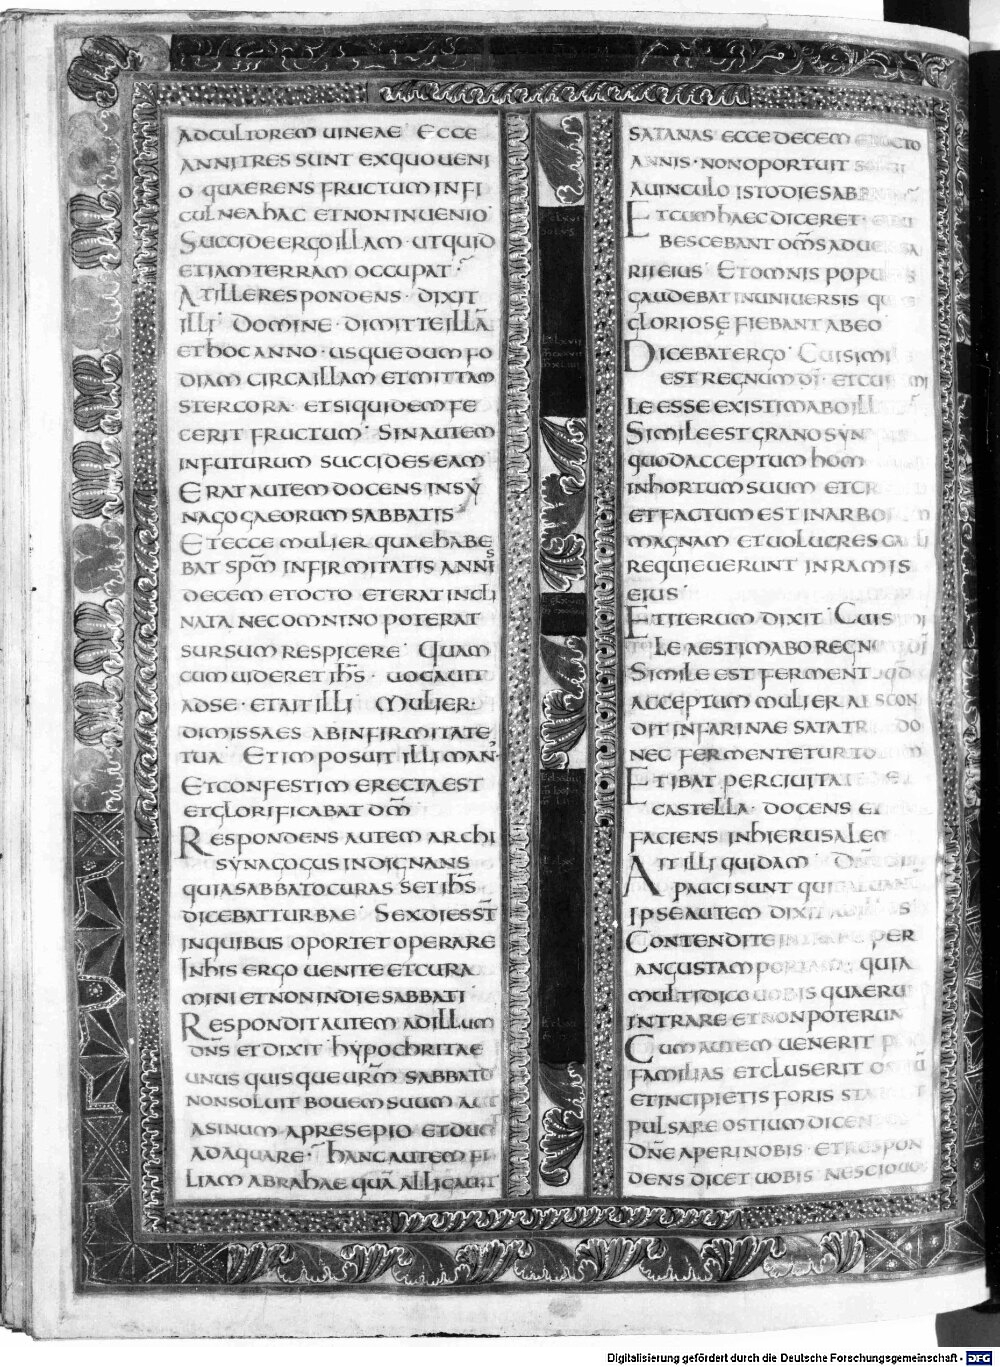 ADCULTOREM UINEAE· ECCE
ANNITRES SUNT EXQUOUENI
O QUAERENS FRUCTUM INFI
CULNEAHAC ETNONINUENIO·
SUCCIDEERGOILLAM· UTQUID
ETIAMTERRAM OCCUPAT·
ATILLERESPONDENS· DIXIT
ILLI· DOMINE· DIMITTEILLĀ
ETHOCANNO· USQUEDUMFO
DIAM CIRCAILLAM ETMITTAM
STERCORA· ETSIQUIDEMFE
CERIT FRUCTUM· SINAUTEM
INFUTURUM SUCCIDESEAM
ERATAUTEMDOCENS INSY
NAGOGAEORUM SABBATIS·
ETECCE MULIER QUAEHABE
BAT SPM̄ INFIRMITATIS ANNIS
DECEM ETOCTO ETERATINCLI
NATA NECOMNINO POTERAT
SURSUM RESPICERE· QUAM
CUMUIDERET IHS̄· UOCAUIT
ADSE· ETAITILLI MULIER·
DIMISSAES ABINFIRMITATE
TUA ETIMPOSUIT ILLIMAN·
ETCONFESTIM ERECTAEST
ETGLORIFICABAT DM̄
RESPONDENS AUTEM ARCHI
SYNAGOGUS INDIGNANS
QUIASABBATOCURASSETIHS̄
DICEBATTURBAE· SEXDIESST̄
INQUIBUS OPORTETOPERARE
INHIS ERGO UENITE ETCURA
MINI ETNONINDIESABBATI·
RESPONDITAUTEM ADILLUM
DNS̄ ETDIXIT· HYPOCHRITAE
UNUS QUISQUEURM̄ SABBATO
NONSOLUIT BOUEMSUUM AUT
ASINUM APRESEPIO ETDUCIT
ADAQUARE· HANCAUTEM FI
LIAMABRAHAE QUĀ ALLIGAUIT
SATANAS ECCEDECEM ETOCTO
ANNIS· NONOPORTUIT
AUINCULO ISTODIESABBATI
ETCUMHAECDICERET·
BESCEBANT OMS̄ ADUERSA
RIIEIUS· ETOMNIS POPULUS
GAUDEBAT INUNIUERSIS
GLORIOSE FIEBANT ABEO·
DICEBATERGO· CUISIMI
ESTREGNUM DĪ· ETCUI
LE ESSE EXISTIMABOILL
SIMILEEST GRANOSYN
QUODACCEPTUM HOM
INHORTUM SUUM ETCR
ETFACTUM EST INARBOR
MAGNAM ETUOLUCRES
REQUIEUERUNT INRAMIS
EIUS·
ETITERUM DIXIT· CUISIMI
LE AESTIMABOREGN DĪ
SIMILEEST FERMENT QD̄
ACCEPTUM MULIER ABSCON
DIT INFARINAE SATATR DO
NEC FERMENTETUR TO M
ETIBAT PERCIUITATE
CASTELLA· DOCENS ET
FACIENS INHIERUSALEM
AITILLI QUIDAM
PAUCISUNT QUI
IPSEAUTEM DIXIT
CONTENDITE INTRARE PER
ANGUSTAM PORTAM· QUIA
MULTIDICO UOBIS QUAERU
INTRARE ETNONPOTERUN
CUM AUTEM UENERIT
FAMILIAS ETCLUSERIT
ETINCIPIETIS FORIS
PULSARE OSTIUM DICEN
DNE̅ APERINOBIS· ETRESPON
DENS DICET UOBIS NESCIOUOS
Digitalisierung gefördert durch die Deutsche Forschungsgemeinschaft - DFG